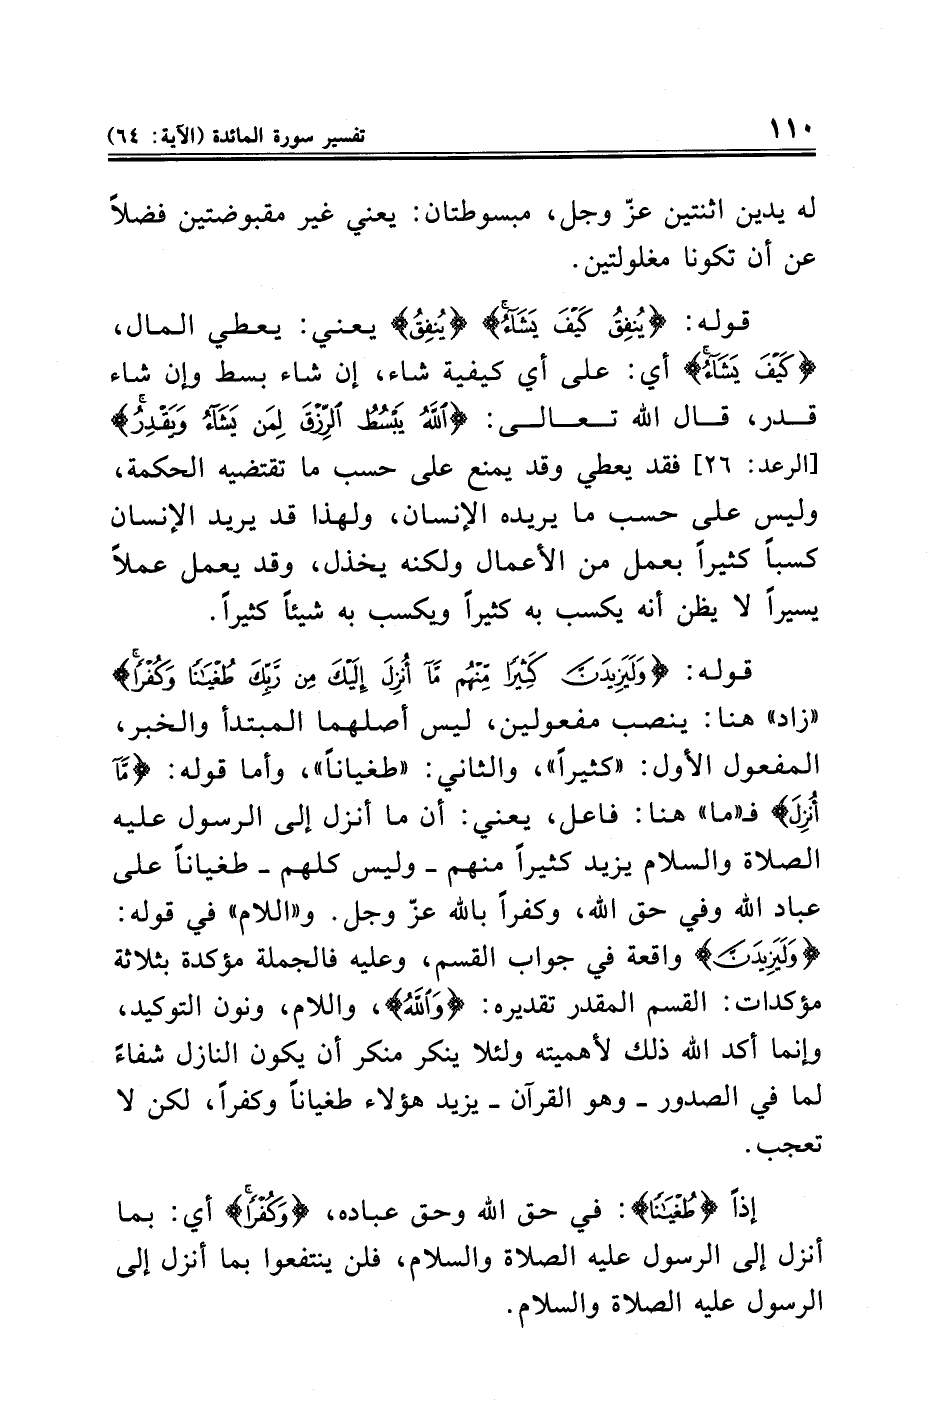 ١١٠ تفسير سورة المائدة (الآية: ٦٤)
له يدين اثنتين عزّ وجل، مبسوطتان: يعني غير مقبوضتين فضلاً
عن أن تكونا مغلولتين.
قوله: ﴿يُنفِقُ كَيْفَ يَشَآءُۚ﴾ ﴿يُنفِقُ﴾ يعني: يعطي المال،
﴿كَيْفَ يَشَآءُۚ﴾ أي: على أي كيفية شاء، إن شاء بسط وإن شاء
قدر، قال الله تعالى: ﴿ٱللَّهُ يَبْسُطُ ٱلرِّزْقَ لِمَن يَشَآءُ وَيَقْدِرُۚ﴾
[الرعد: ٢٦] فقد يعطي وقد يمنع على حسب ما تقتضيه الحكمة،
وليس على حسب ما يريده الإنسان، ولهذا قد يريد الإنسان
كسباً كثيراً بعمل من الأعمال ولكنه يخذل، وقد يعمل عملاً
يسيراً لا يظن أنه يكسب به كثيراً ويكسب به شيئاً كثيراً.
قوله: ﴿وَلَيَزِيدَنَّ كَثِيرًا مِّنْهُم مَّآ أُنزِلَ إِلَيْكَ مِن رَّبِّكَ طُغْيَٰنًا وَكُفْرًاۚ﴾
«زاد» هنا: ينصب مفعولين، ليس أصلهما المبتدأ والخبر،
المفعول الأول: «كثيراً»، والثاني: «طغياناً»، وأما قوله: ﴿مَّآ
أُنزِلَ﴾ فـ«ما» هنا: فاعل، يعني: أن ما أنزل إلى الرسول عليه
الصلاة والسلام يزيد كثيراً منهم - وليس كلهم - طغياناً على
عباد الله وفي حق الله، وكفراً بالله عزّ وجل. و«اللام» في قوله:
﴿وَلَيَزِيدَنَّ﴾ واقعة في جواب القسم، وعليه فالجملة مؤكدة بثلاثة
مؤكدات: القسم المقدر تقديره: ﴿وَٱللَّهُ﴾، واللام، ونون التوكيد،
وإنما أكد الله ذلك لأهميته ولئلا ينكر منكر أن يكون النازل شفاءً
لما في الصدور - وهو القرآن - يزيد هؤلاء طغياناً وكفراً، لكن لا
تعجب.
إذاً ﴿طُغْيَٰنًا﴾: في حق الله وحق عباده، ﴿وَكُفْرًاۚ﴾ أي: بما
أنزل إلى الرسول عليه الصلاة والسلام، فلن ينتفعوا بما أنزل إلى
الرسول عليه الصلاة والسلام.